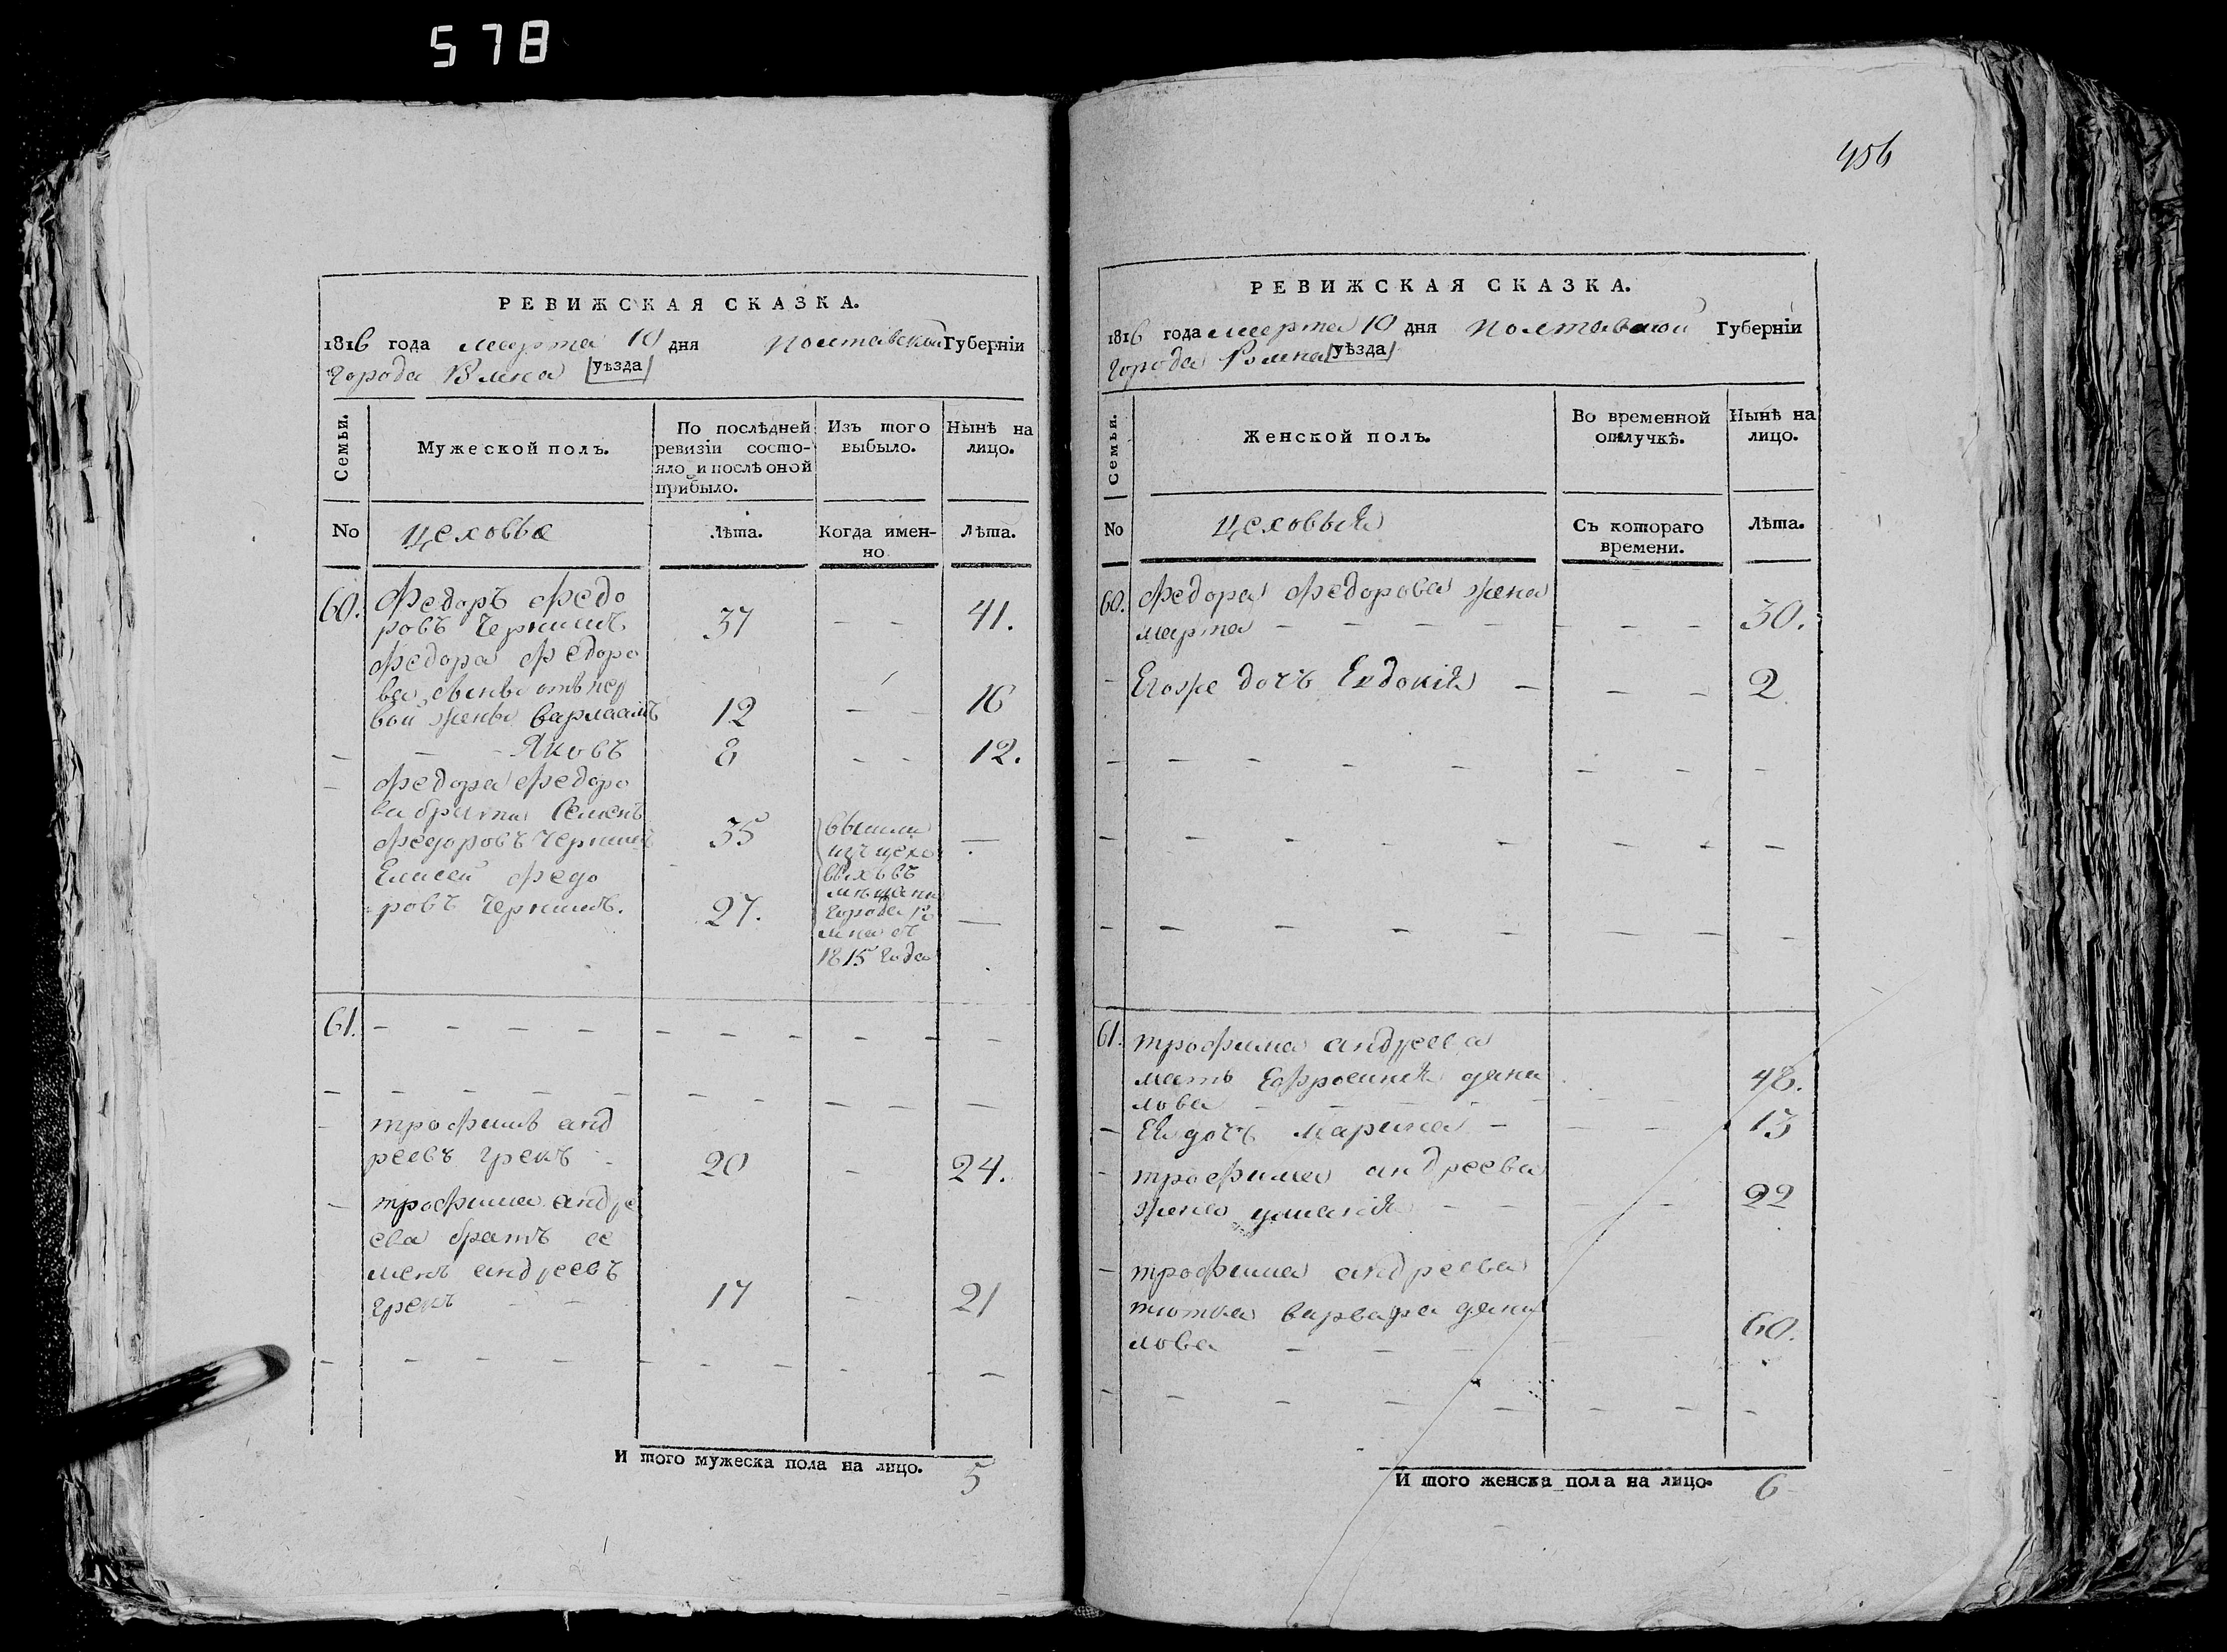 578
РЕВИЖСКАЯ СКАЗКА.
1816 года марта 10 дня Полтавской Губерніи
Города Ромна уѣзда
Семьи.
Мужеской полъ.
По послѣдней ревизіи состо-
яло и послѣ оной прибыло.
Изъ того выбыло.
Нынѣ на лицо.
No
цеховые
Лѣта.
Когда имен-
но
Лѣта.
60. Федоръ Федо
ровъ 37 — — 41.
Федора Федоро
ва сыны отъ пер
вой жены варлаамъ 12 — — 16
— — — Яковъ 8 — — 12.
— Федора Федоро
ва брата Семенъ
Федоровъ 35 —
Елисей Федо
ровъ 27. —
вышли
изъ цехо
выхъ въ
мѣщане
города Ро
мна съ
1815 года
61. — — — — — — — — — —
— — — — — — — — — —
— трофимъ анд
реевъ грекъ 20 — 24.
— трофима андре
ева братъ се
менъ андреевъ
грекъ — — 17 — 21
— — — — — — — — — —
И того мужеска пола на лицо. 5
456
РЕВИЖСКАЯ СКАЗКА.
1816 года марта 10 дня Полтавской Губерніи
Города Ромна уѣзда
Семьи.
Женской полъ.
Во временной
отлучкѣ.
Нынѣ на
лицо.
No
цеховыя
Съ котораго
времени.
Лѣта.
60. Федора Федорова жена
марта — — — — — — — — 30.
— Егоже дочъ Евдокія — — — 2
— — — — — — — —
— — — — — — — —
— — — — — — — —
61. трофима андреева
мать Ефросинія дани
лова — — — 48.
— Ея дочъ марина — — — 13
— трофима андреева
жена — — — — 22
— трофима андреева
тютка варвара дани
лова — — — — 60.
— — — — — — — —
И того женска пола на лицо. 6